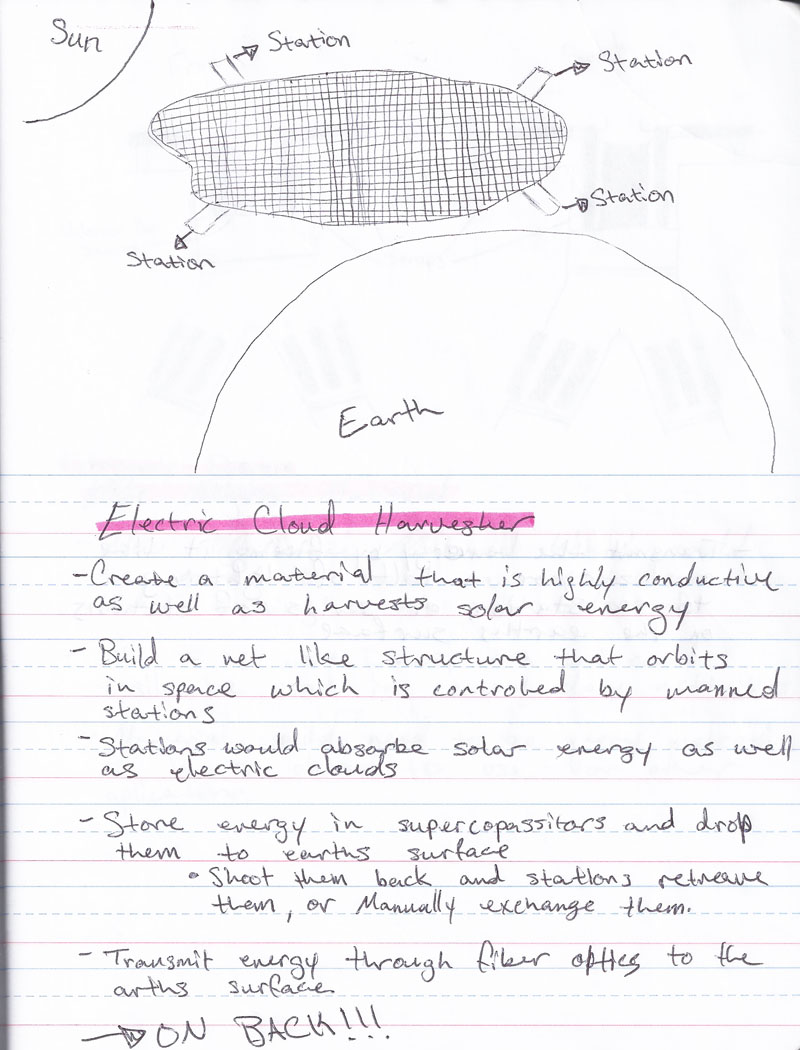 Sun
Station
Station
Station
Station
Earth
Electric Cloud Harvesher
- Create a material that is highly conductive
as well as harvests solar energy
- Build a net like structure that orbits
in space which is controled by manned
stations
- Stations would absorbe solar energy as well
as electric clouds
- Store energy in supercopassitors and drop
them to earths surface
• Shoot them back and stations retreave
them, or Manually exchange them.
- Transmit energy through fiber optics to the
arths surface.
→ ON BACK!!!